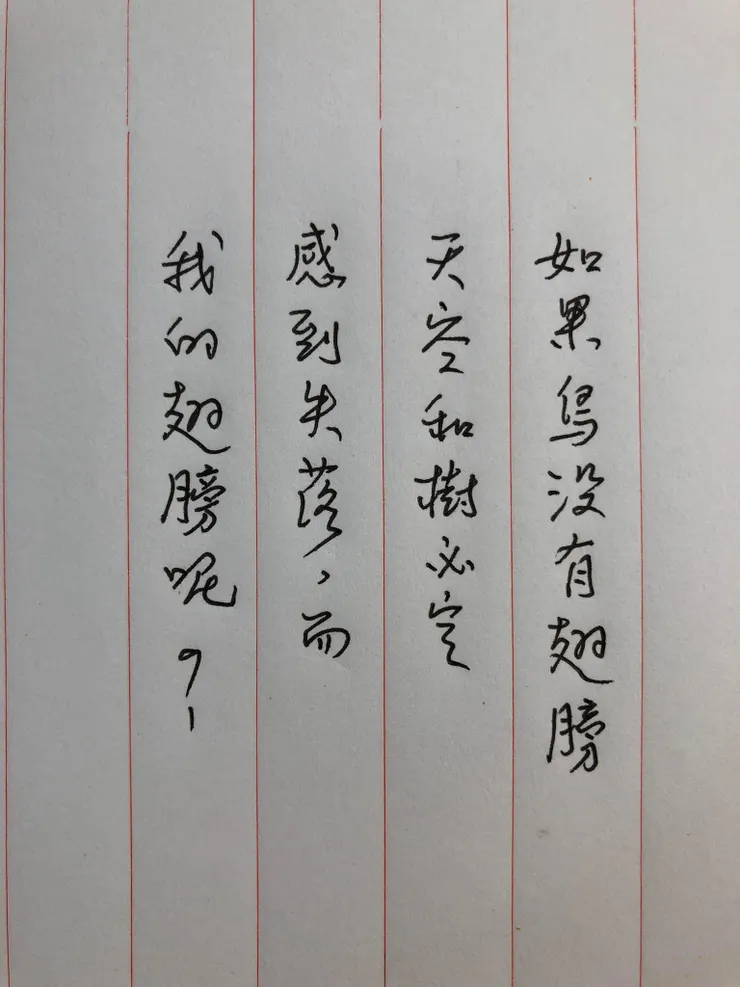 如果鸟没有翅膀
天空和樹必定
感到失落，而
我的翅膀呢？